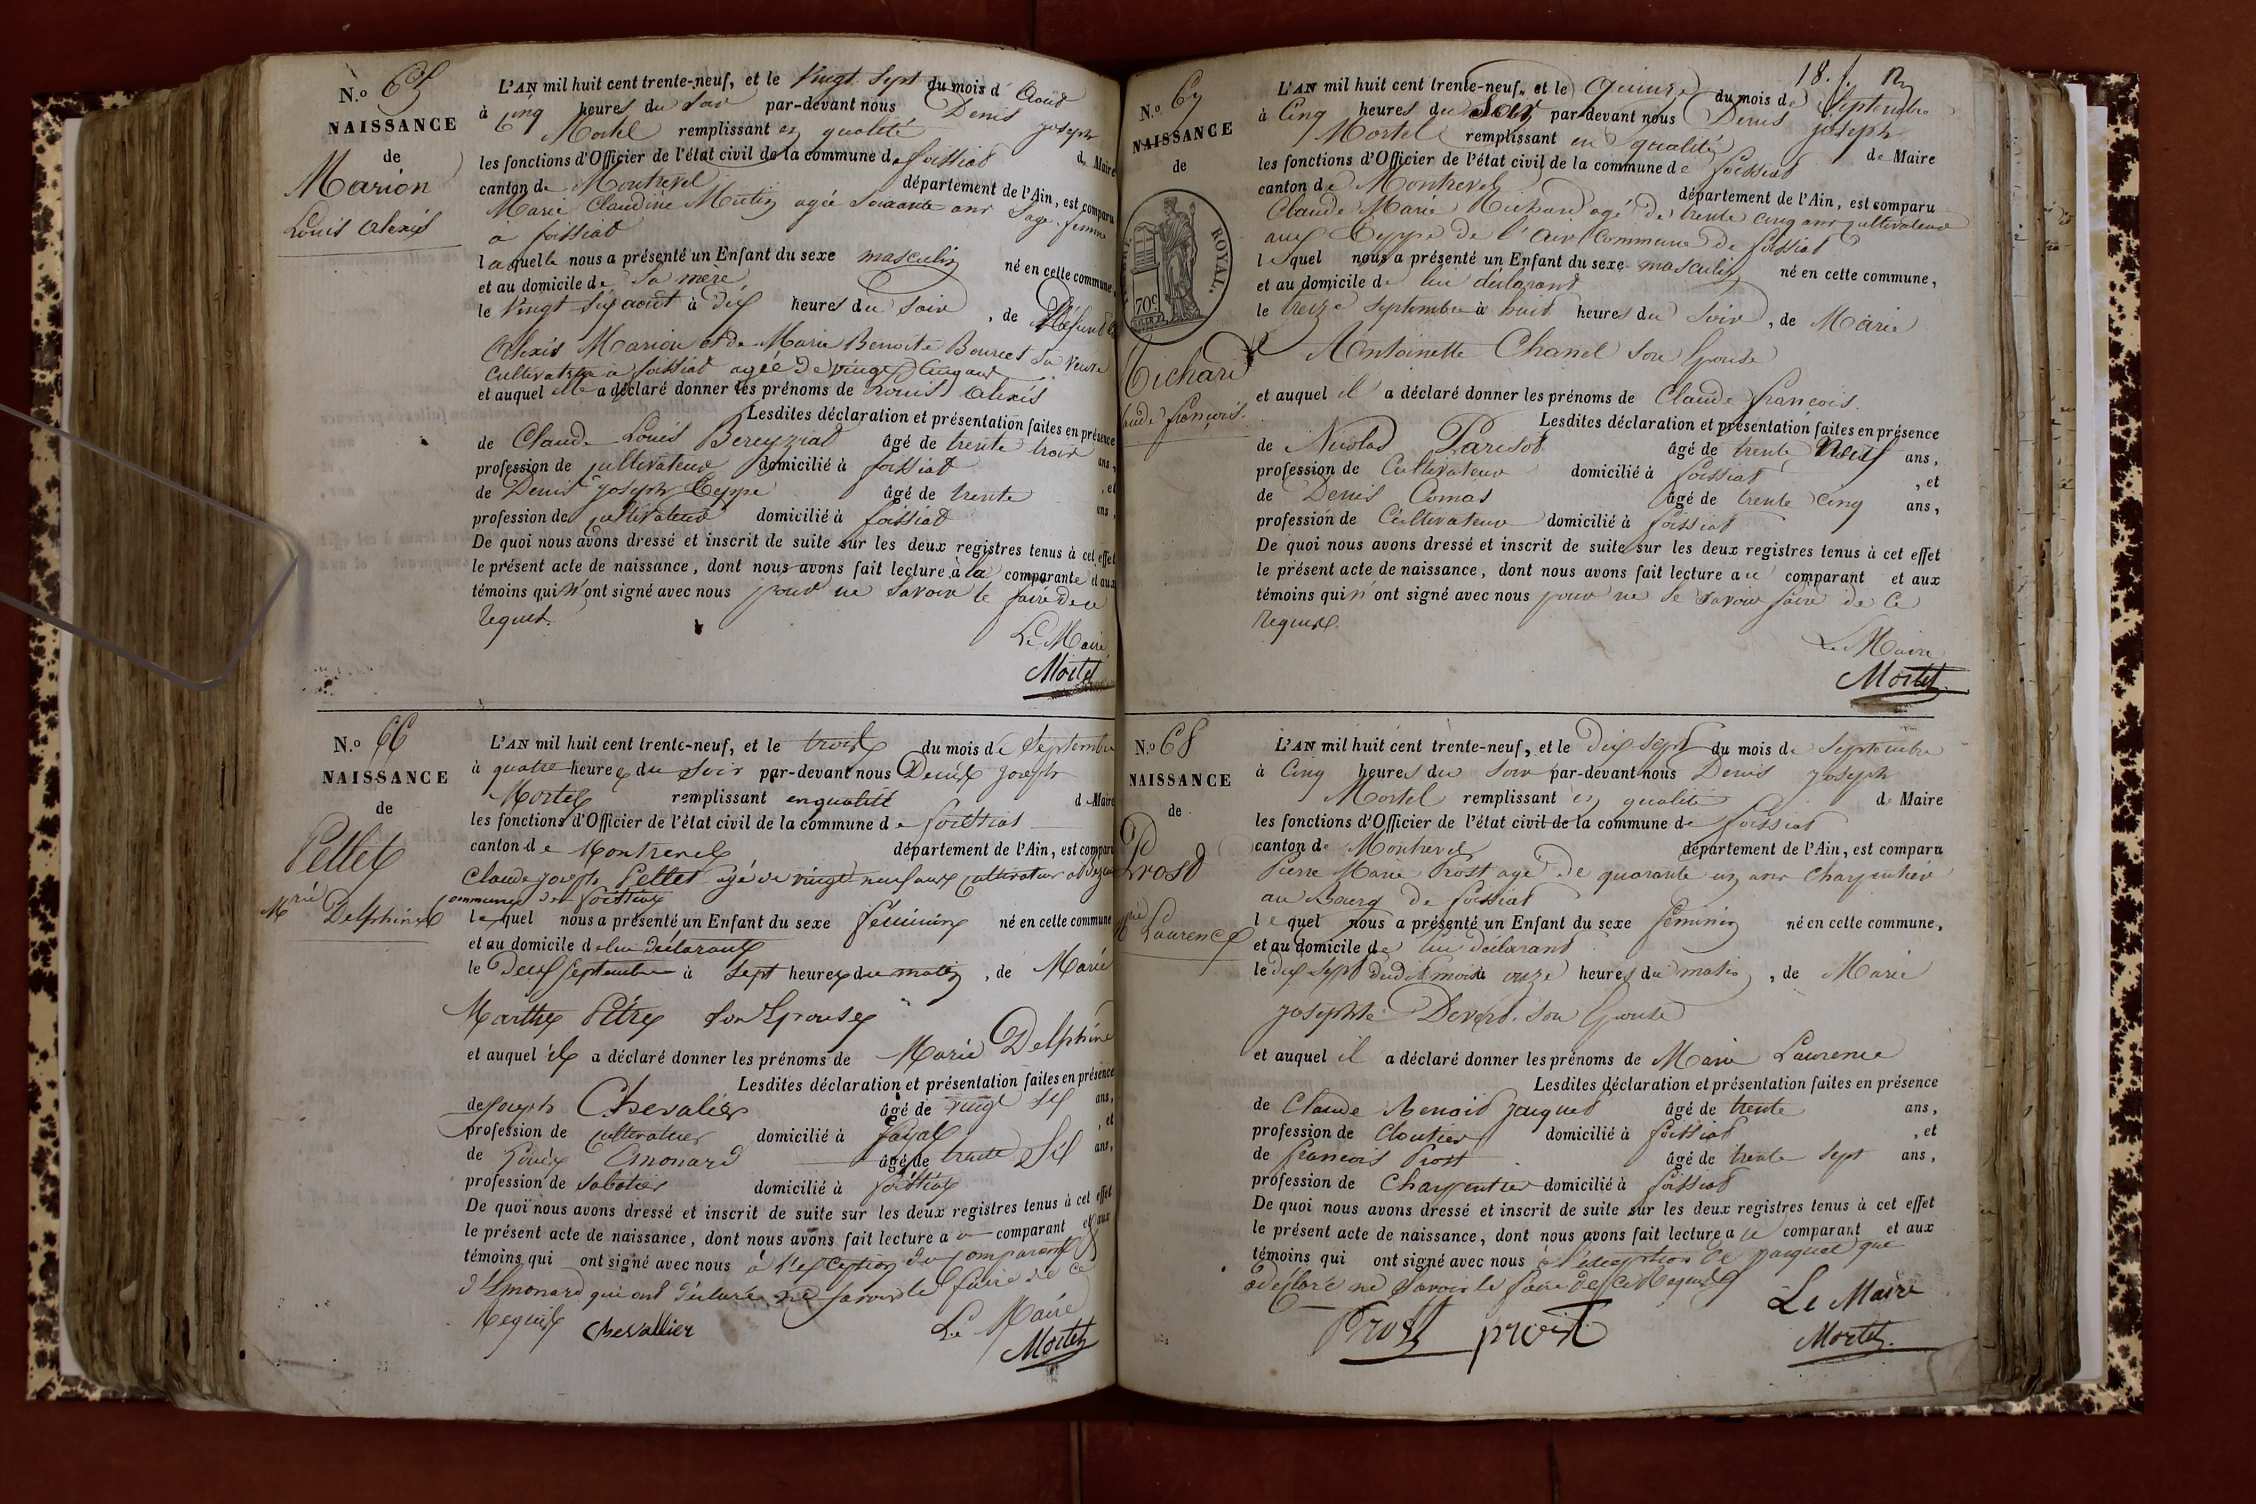 N.º 65
NAISSANCE
de
Marion
Louis Alexis
L'AN mil huit cent trente-neuf, et le vingt sept du mois d'Août
à cinq heures du soir par-devant nous Denis joseph
Mortel remplissant en qualité de Maire
les fonctions d'Officier de l'état civil de la commune de foissiat
canton de Montrevel département de l'Ain, est comparu
Marie Claudine Mutin agée soixante ans Sage femme
a foissiat
laquelle nous a présenté un Enfant du sexe masculin né en cette commune,
et au domicile de sa mere
le vingt six août à dix heures du soir, de défunt
Alexis Marion et de Marie Benoite Bourcet sa veuve
cultivatrice a foissiat agée de vingt cinq ans
et auquel elle a déclaré donner les prénoms de Louis Alexis
Lesdites déclaration et présentation faites en présence
de Claude Louis Bereyziat âgé de trente trois ans,
profession de cultivateur domicilié à foissiat, et
de Denis joseph Ceyppe âgé de trente ans,
profession de cultivateur domicilié à foissiat
De quoi nous avons dressé et inscrit de suite sur les deux registres tenus à cet effet
le présent acte de naissance, dont nous avons fait lecture à la comparante et aux
témoins qui n'ont signé avec nous pour ne savoir le faire de ce
requis.
Le Maire
Mortel
N.º 66
NAISSANCE
de
Pellet
Mrie Delphine
L'AN mil huit cent trente-neuf, et le trois du mois de Septembre
à quatre heures du soir par-devant nous Denis joseph
Mortel remplissant en qualité de Maire
les fonctions d'Officier de l'état civil de la commune de foissiat
canton de Montrevel département de l'Ain, est comparu
Claude joseph Pellet agé de vingt neuf ans cultivateur a
commune de foissiat
lequel nous a présenté un Enfant du sexe féminin né en cette commune
et au domicile de lui déclarant
le Deux septembre à sept heures du matin, de Marie
Marthe Pitre son Epouse
et auquel il a déclaré donner les prénoms de Marie Delphine
Lesdites déclaration et présentation faites en présence
de joseph Chevalier âgé de vingt six ans,
profession de cultivateur domicilié à jayat, et
de Louis Emonard âgé de trente six ans,
profession de sabotier domicilié à foissiat
De quoi nous avons dressé et inscrit de suite sur les deux registres tenus à cet effet
le présent acte de naissance, dont nous avons fait lecture au comparant et aux
témoins qui ont signé avec nous à l'exception du comparant et
d'Emonard qui ont déclaré ne savoir le faire de ce
Requis
Chevallier
Le Maire
Mortel
18.
N.º 67
NAISSANCE
de
ROYAL.
70c
Michard
Claude françois.
L'AN mil huit cent trente-neuf, et le quinze du mois de Septembre
à Cinq heures du Soir par-devant nous Denis joseph
Mortel remplissant en qualité de Maire
les fonctions d'Officier de l'état civil de la commune de foissiat
canton de Montrevel département de l'Ain, est comparu
Claude Marie Michard agé de trente cinq ans cultivateur
aux Ceyppe de l'air Commune de foissiat
lequel nous a présenté un Enfant du sexe masculin né en cette commune,
et au domicile de lui déclarant
le treize septembre à huit heures du soir, de Marie
Antoinette Chanel son Epouse
et auquel il a déclaré donner les prénoms de Claude françois.
Lesdites déclaration et présentation faites en présence
de Nicolas Parisot âgé de trente Neuf ans,
profession de Cultivateur domicilié à foissiat, et
de Denis Comas âgé de trente cinq ans,
profession de Cultivateur domicilié à foissiat
De quoi nous avons dressé et inscrit de suite sur les deux registres tenus à cet effet
le présent acte de naissance, dont nous avons fait lecture au comparant et aux
témoins qui n'ont signé avec nous pour ne le savoir faire de ce
Requis.
Le Maire
Mortel
N.º 68
NAISSANCE
de
Prost
Mrie Laurence
L'AN mil huit cent trente-neuf, et le dix sept du mois de Septembre
à Cinq heures du soir par-devant nous Denis joseph
Mortel remplissant en qualité de Maire
les fonctions d'Officier de l'état civil de la commune de foissiat
canton de Montrevel département de l'Ain, est comparu
Pierre Marie Prost agé de quarante un ans Charpentier
au Bourg de foissiat
lequel nous a présenté un Enfant du sexe féminin né en cette commune,
et au domicile de lui déclarant
le dix sept dudit mois à onze heures du matin, de Marie
josephte Devert son Epouse
et auquel il a déclaré donner les prénoms de Marie Laurence
Lesdites déclaration et présentation faites en présence
de Claude Benoit jacquet âgé de trente ans,
profession de Cloutier domicilié à foissiat, et
de françois Prost âgé de trente sept ans,
profession de Charpentier domicilié à foissiat
De quoi nous avons dressé et inscrit de suite sur les deux registres tenus à cet effet
le présent acte de naissance, dont nous avons fait lecture au comparant et aux
témoins qui ont signé avec nous à l'exception de jacquet qui
a déclaré ne savoir le faire de ce Requis
Prost prost
Le Maire
Mortel